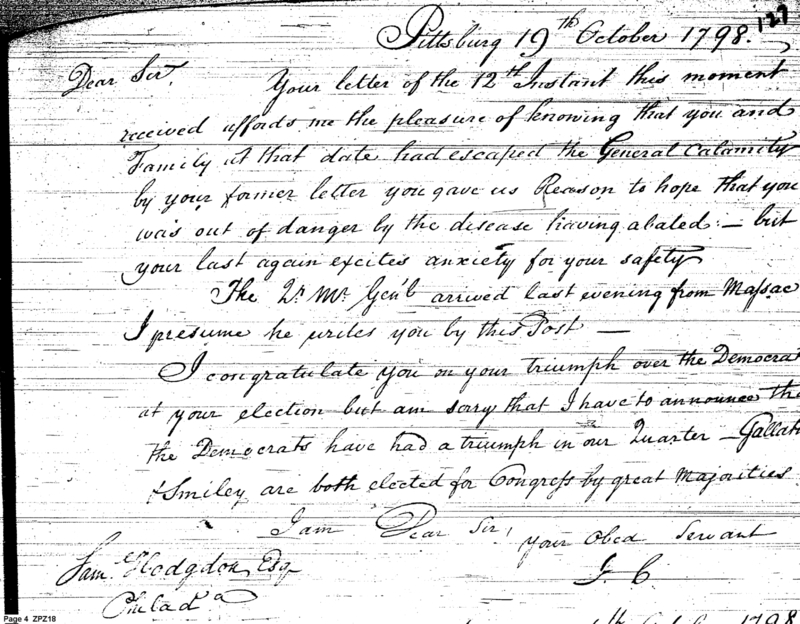 127
Pittsburg 19th October 1798.
Dear Sir. Your letter of the 12th Instant this moment
received affords me the pleasure of knowing that you and
Family at that date had escaped the General Calamity
by your former letter you gave us Reason to hope that you
was out of danger by the disease having abated: — but
your last again excites anxiety for your safety
The Qr. Mr. Genl. arrived last evening from Massac
I presume he writes you by this Post —
I congratulate you on your triumph over the Democrat
at your election but am sorry that I have to announce the
the Democrats have had a triumph in our Quarter — Gallat
& Smiley are both elected for Congress by great Majorities
I am Dear Sir, your Obed Servant
J. C.
Sam. Hodgdon Esq
Philada
1798
Page 4 ZPZ18